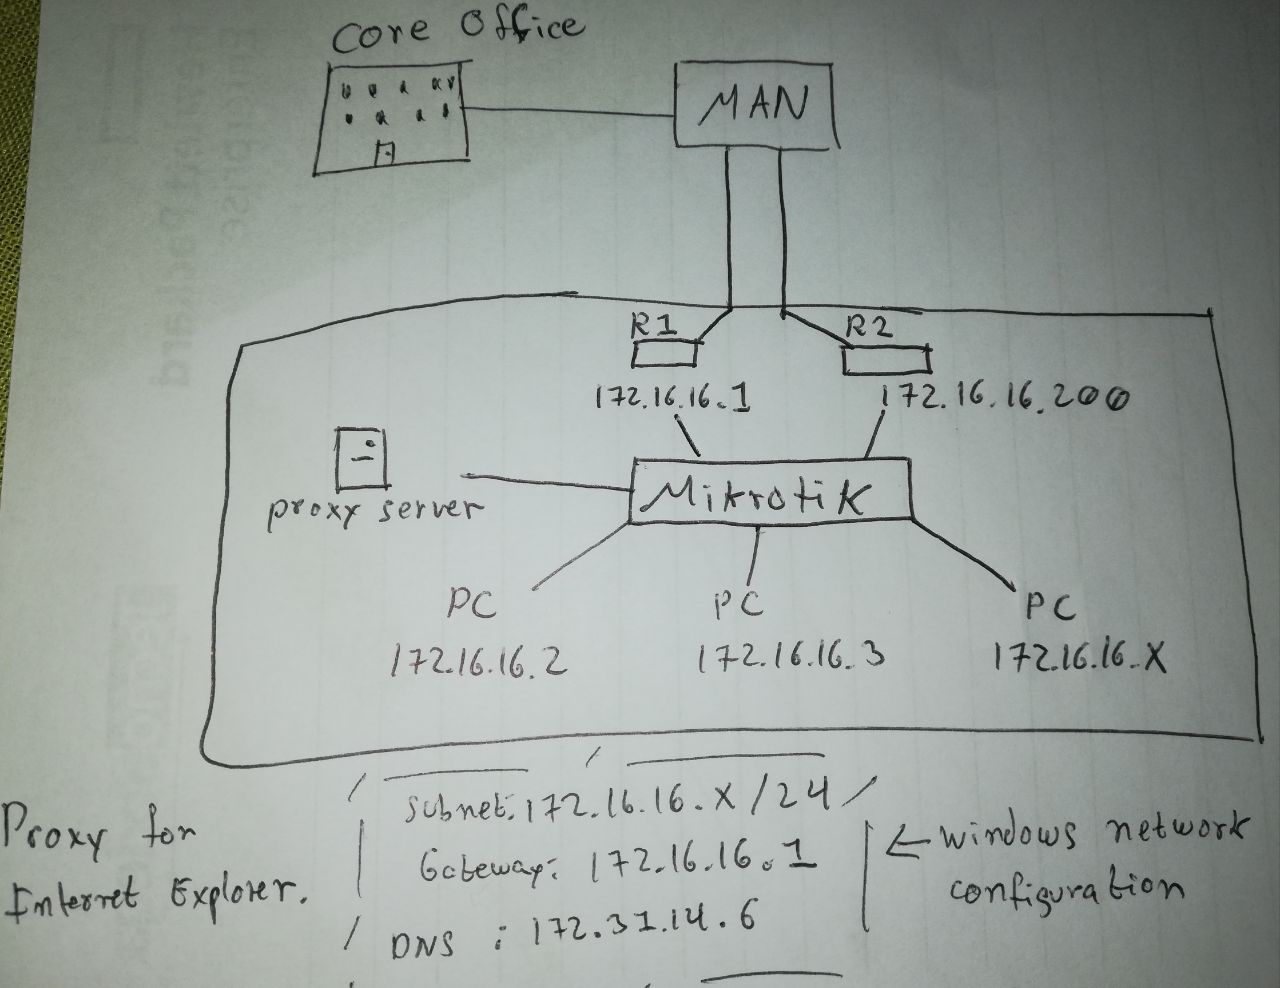 Core Office
MAN
R1
R2
172.16.16.1
172.16.16.200
Mikrotik
proxy server
PC
PC
PC
172.16.16.2
172.16.16.3
172.16.16.X
Subnet: 172.16.16.X/24
Gateway: 172.16.16.1
DNS : 172.31.14.6
Proxy for
Internet Explorer.
← windows network
configuration